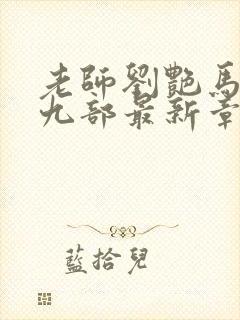 老師劉艷馬
九部最新章
藍拾兒